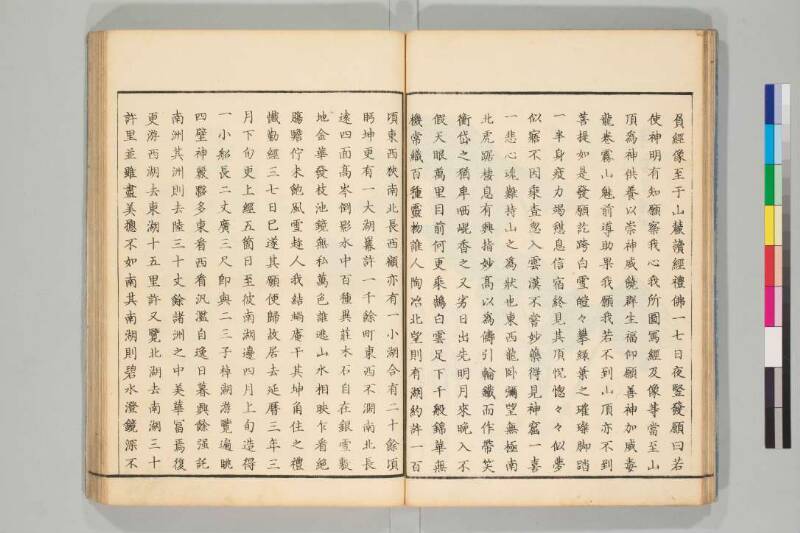 負經像至于山麓讀經禮佛一七日夜堅發願曰若
使神明有知願察我心我所圖寫經及像等當至山
頂為神供養以崇神威饒群生福仰願善神加威毒
龍卷霧山魅前導助果我願我若不到山頂亦不到
菩提如是發願訖跨白雪皚々攀綠葉之璀璨脚踏
一半身疲力竭憩息信宿終見其頂怳惚々々似夢
似寤不因乘査忽入雲漢不嘗妙藥得見神窟一喜
一悲心魂難持山之為狀也東西龍卧彌望無極南
北虎踞棲息有興指妙高以為儔引輪鐵而作帶笑
衡岱之猶卑哂崐香之又劣日出先明月來晚入不
假天眼萬里目前何更乘鵠白雲足下千般錦華無
機常織百種靈物誰人陶冶北望則有湖約許一百
頃東西狹南北長西顧亦有一小湖合有二十餘頃
眄坤更有一大湖羃許一千餘町東西不濶南北長
遠四面高岑倒影水中百種異莊木石自在銀雪敷
地金華發枝池鏡無私萬色誰逃山水相映乍看絕
腸瞻佇未飽風雪趂人我結蝸庵于其坤角住之禮
懺勤經三七日已遂其願便歸故居去延曆三年三
月下旬更上經五箇日至彼南湖邊四月上旬造得
一小舩長二丈廣三尺即與二三子棹湖游覽遍眺
四壁神麗夥多東看西看汎濫自逸日暮興餘强託
南洲其洲則去陸三十丈餘諸洲之中美華冨焉復
更游西湖去東湖十五里許又覽北湖去南湖三十
許里並雖盡美摠不如南其南湖則碧水澄鏡深不